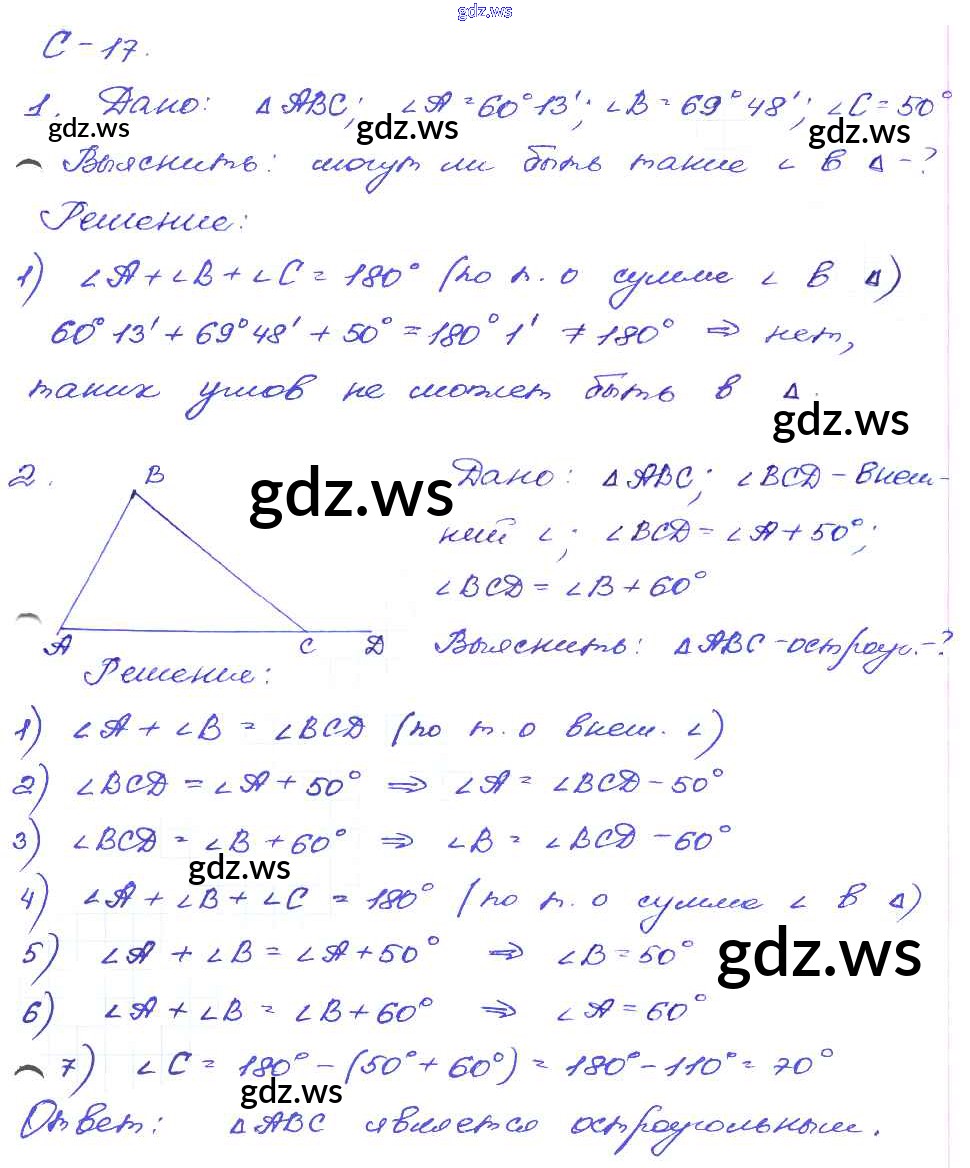 gdz.ws
С-17.
1. Дано: ΔABC; ∠A=60°13'; ∠B=69°48'; ∠C=50°
gdz.ws gdz.ws gdz.ws
Выяснить: могут ли быть такие ∠ в Δ-?
Решение:
1) ∠A+∠B+∠C=180° (по т. о сумме ∠ в Δ)
60°13'+69°48'+50°=180°1' ≠180° ⇒ нет,
таких углов не может быть в Δ.
gdz.ws
2. B Дано: ΔABC; ∠BCD-внеш-
gdz.ws
ний ∠; ∠BCD=∠A+50°;
∠BCD=∠B+60°
A C D Выяснить: ΔABC-остроуг.-?
Решение:
1) ∠A+∠B=∠BCD (по т. о внеш. ∠)
2) ∠BCD=∠A+50° ⇒ ∠A=∠BCD-50°
3) ∠BCD=∠B+60° ⇒ ∠B=∠BCD-60°
gdz.ws
4) ∠A+∠B+∠C=180° (по т. о сумме ∠ в Δ)
5) ∠A+∠B=∠A+50° ⇒ ∠B=50°
gdz.ws
6) ∠A+∠B=∠B+60° ⇒ ∠A=60°
7) ∠C=180°-(50°+60°)=180°-110°=70°
gdz.ws
Ответ: ΔABC является остроугольным.